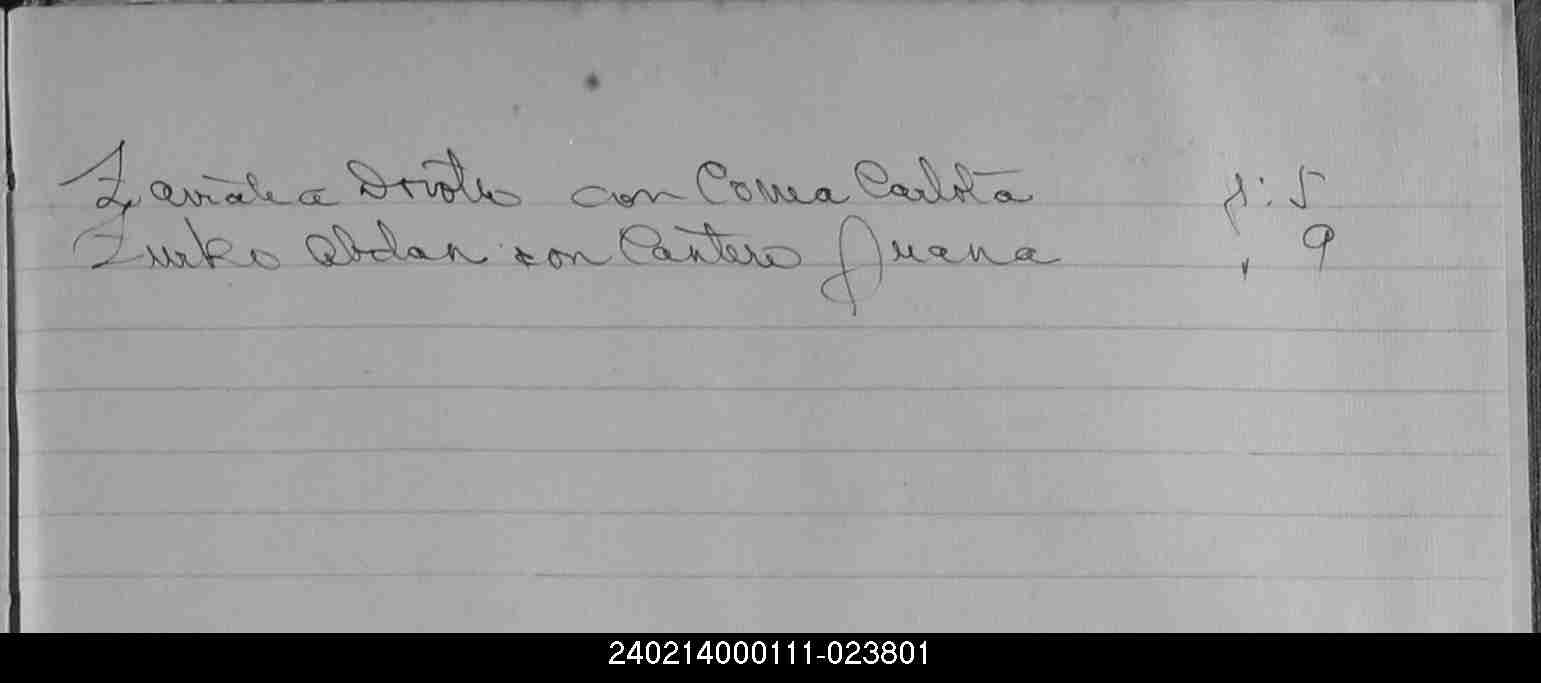 con Correa Carlota f: 5
Zurko Abdan con Cantero Juana " 9
240214000111-023801